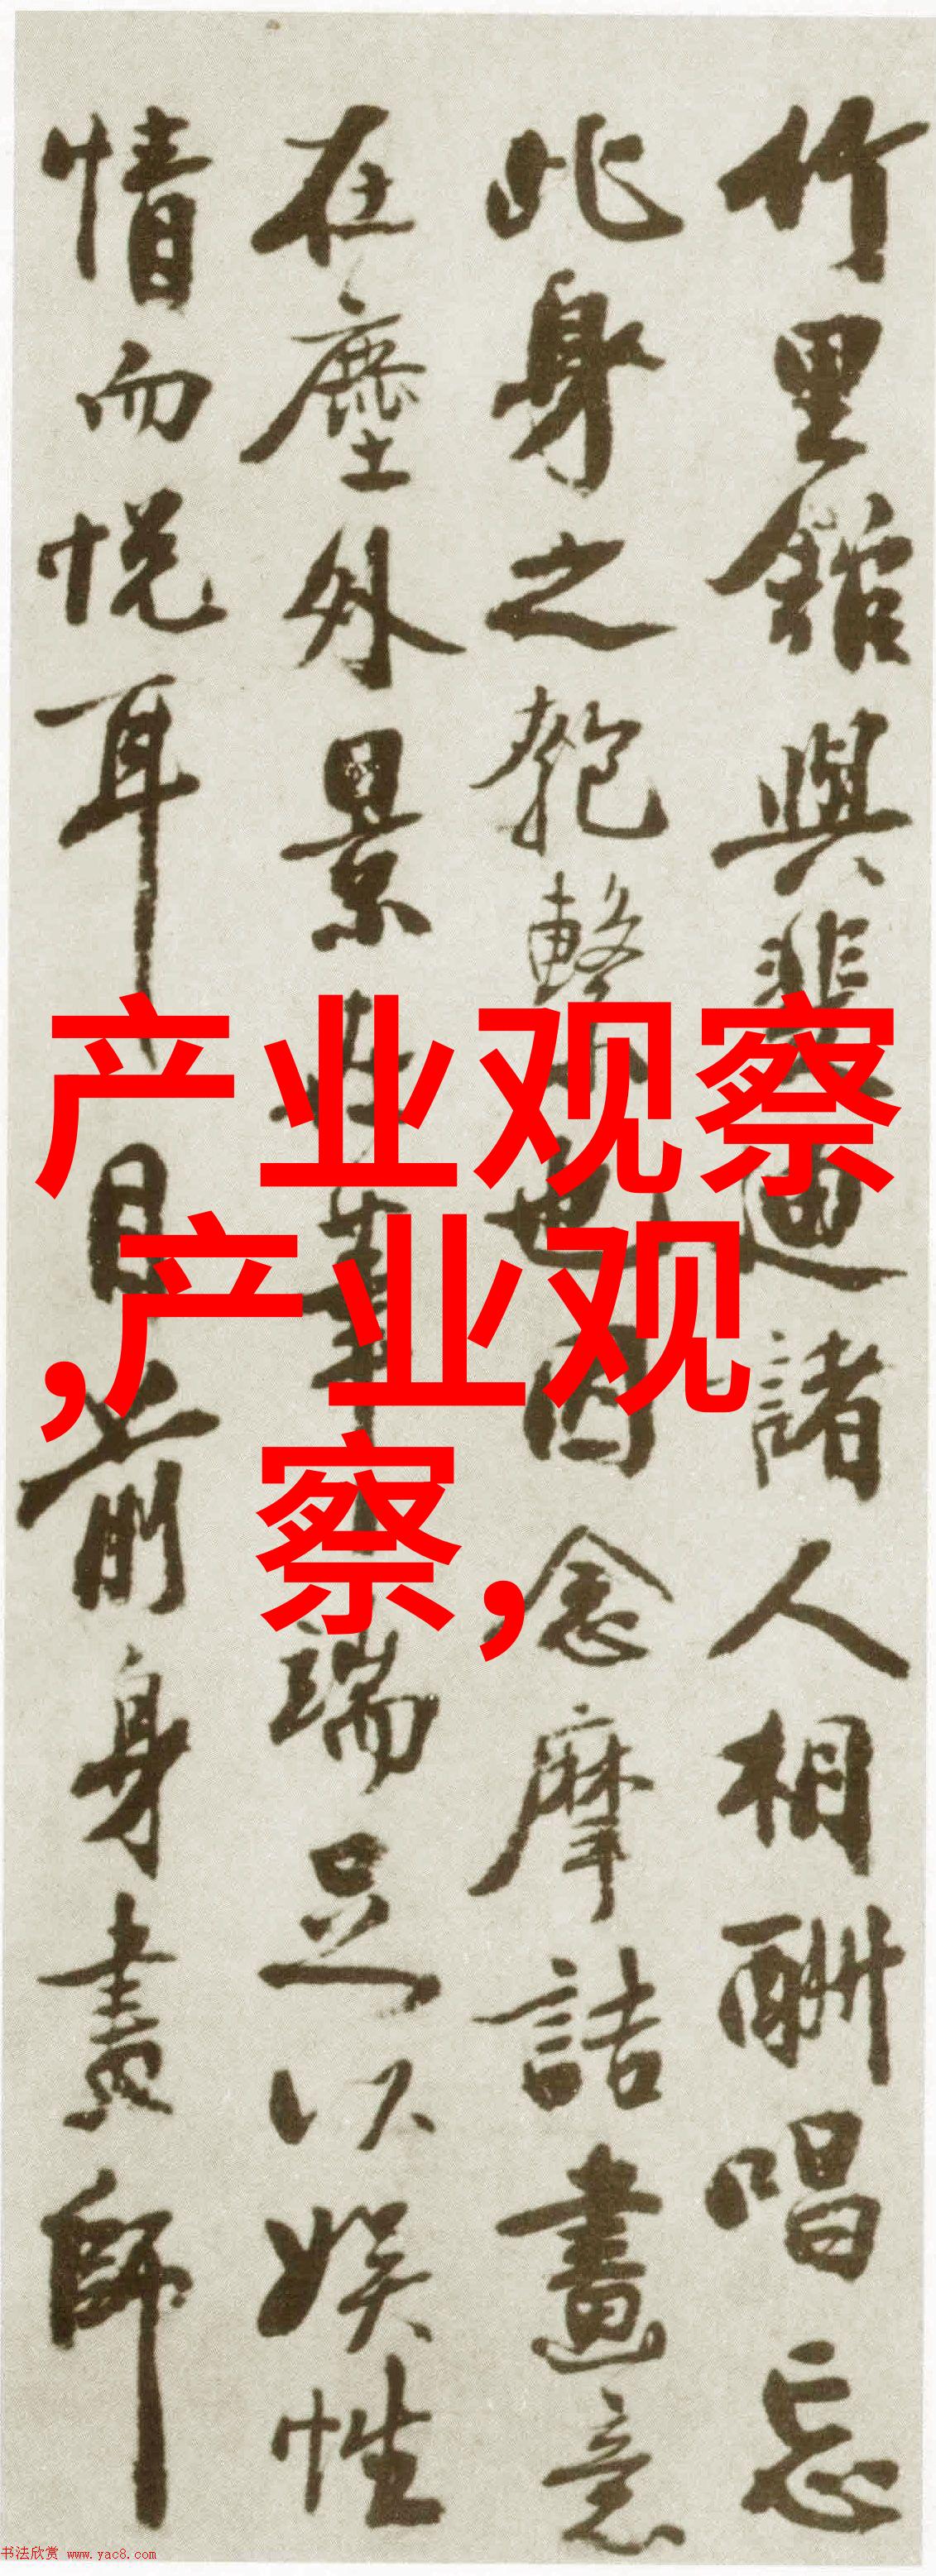 竹里館與裴迪諸人相酬唱忘
此身之匏繫也因念摩詰畫意
在塵外景在筆端足以娛性
情而悅耳目前身畫師
产业观察
,产业观
察,
书法欣赏 www.yac8.com